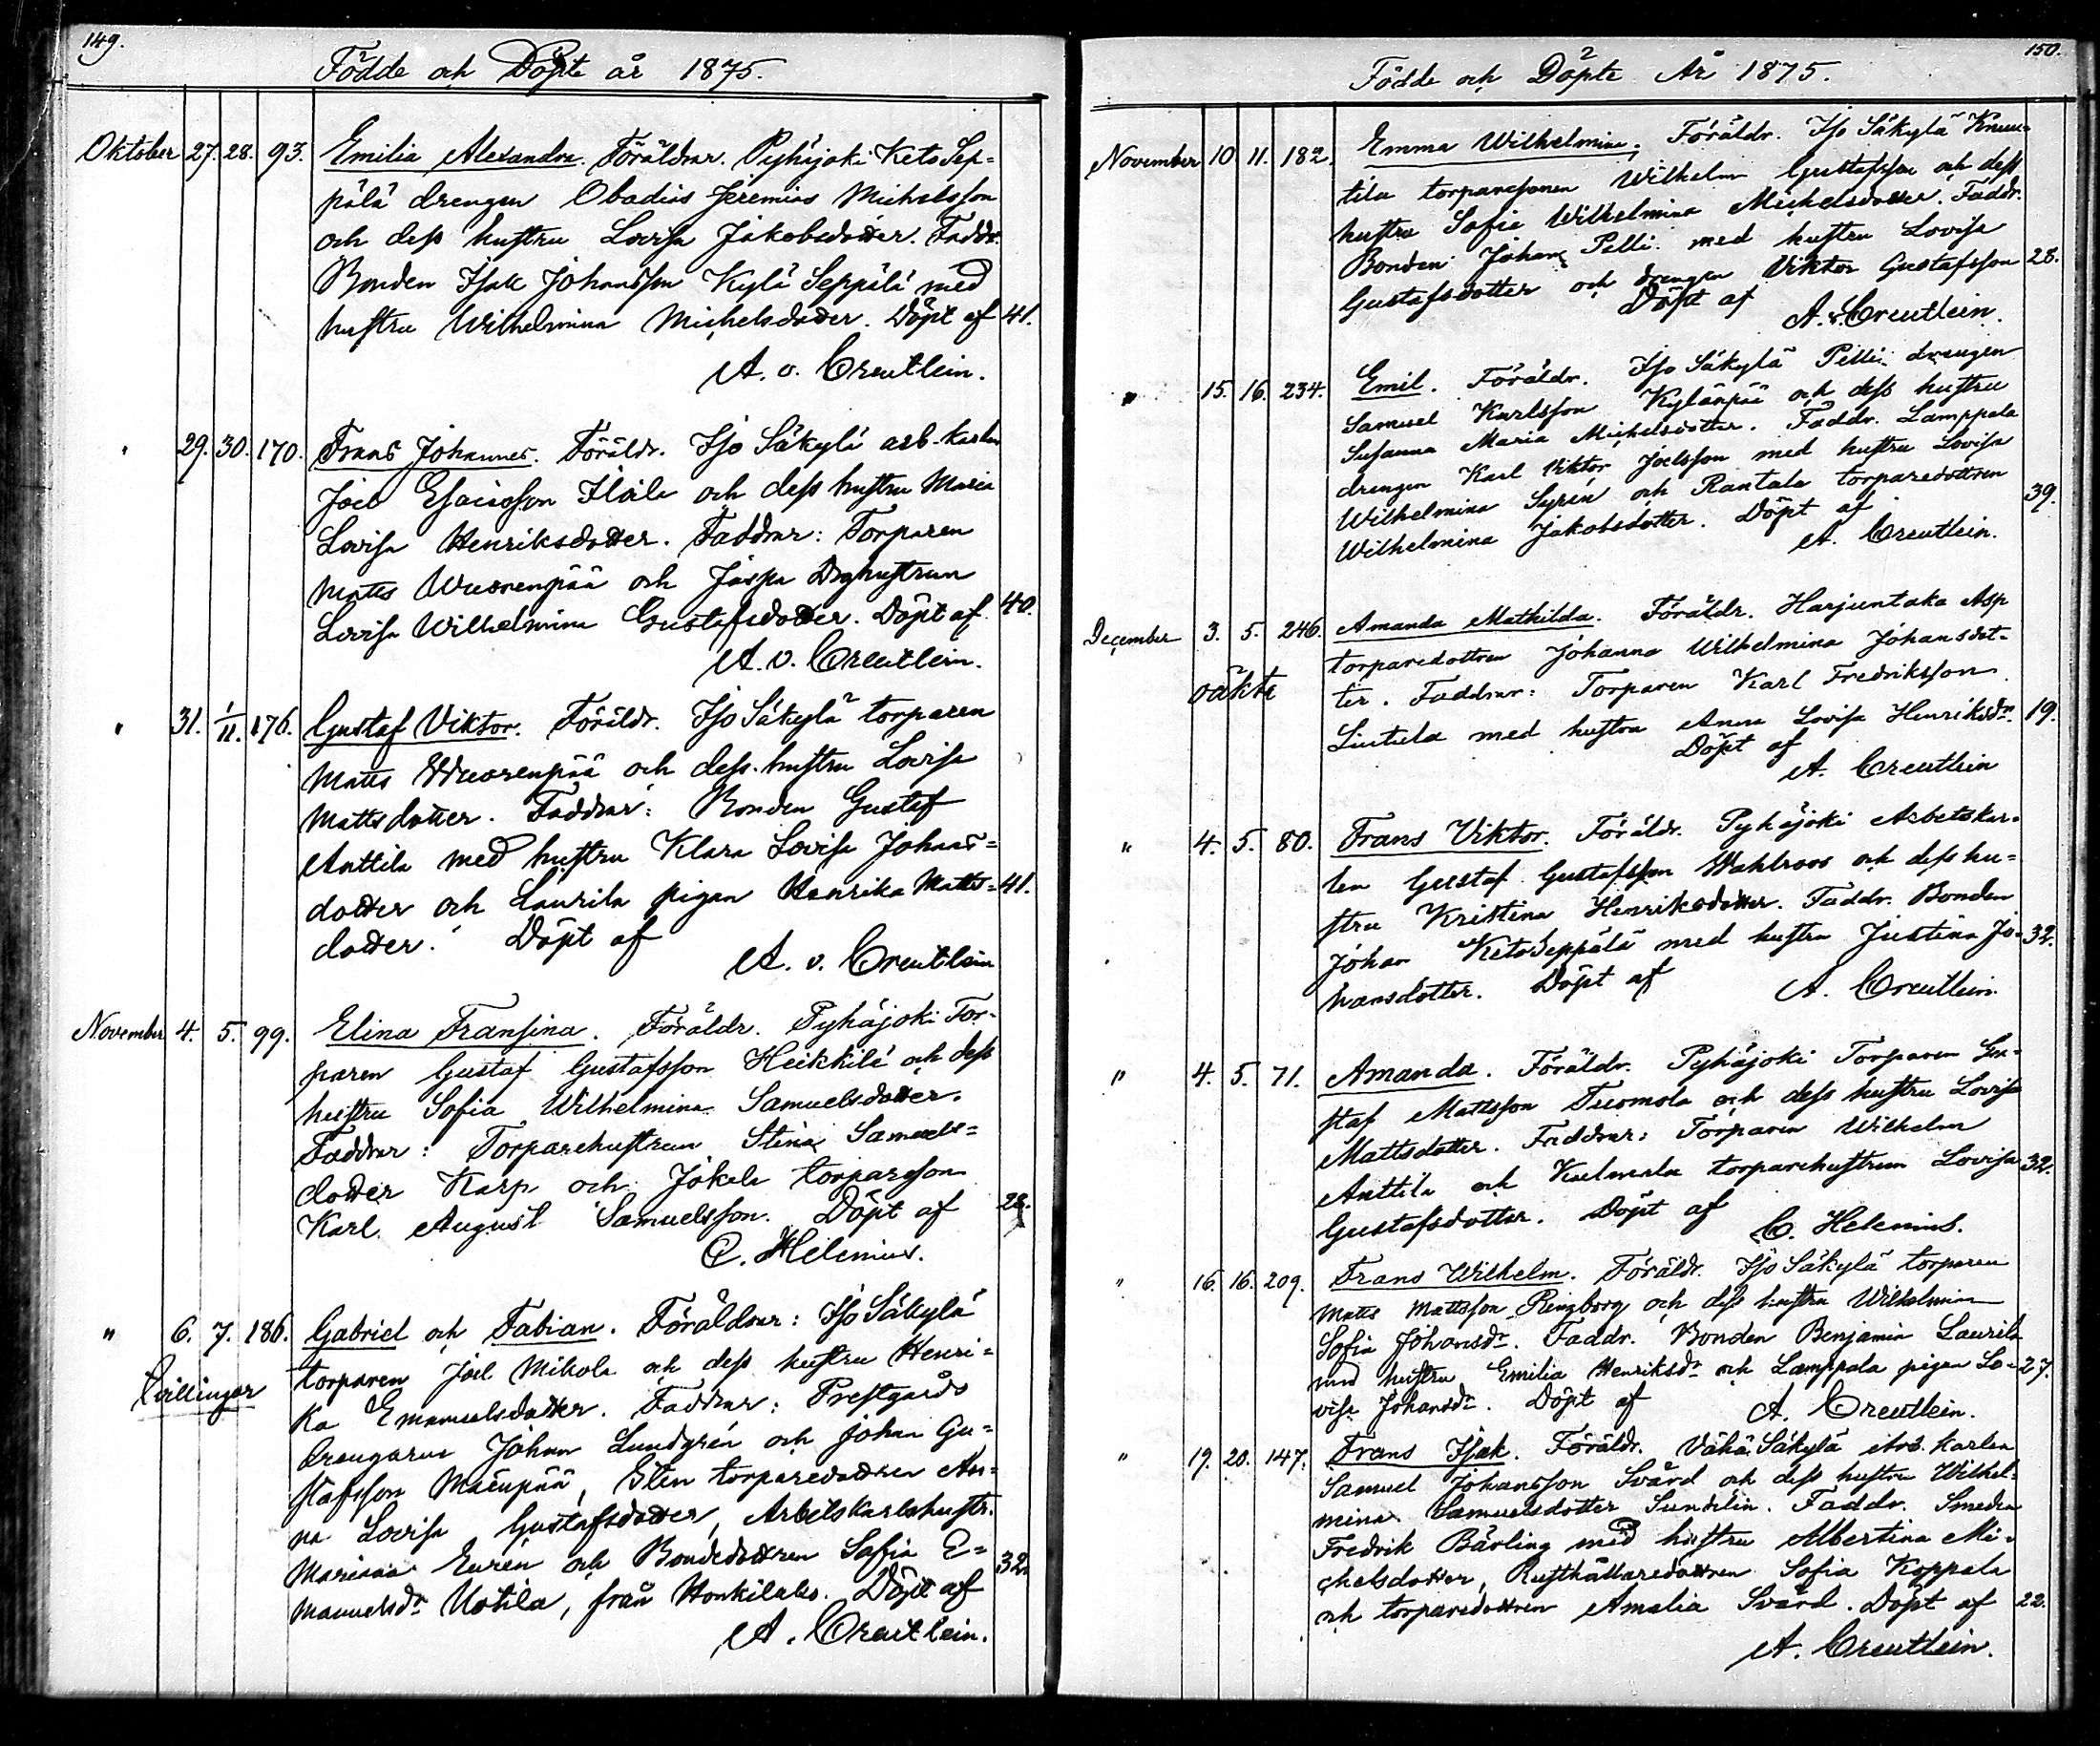 149.
Födde och Döpte år 1875.
Oktober 27. 28. 93. Emilia Alexandra. Föräldrar. Pyhäjoki Keto Sep=
pälä drengen Obadias Jeremias Michelsson
och dess hustru Lovisa Jakobsdotter. Faddr.
Bonden Isak Johansson Kylä Seppälä med
hustru Wilhelmina Michelsdotter. Döpt af 41.
A. v. Creutlein.
" 29. 30. 170. Frans Johannes. Föräldr. Iso Säkylä arb. karlen
Joel Esaiasson Iloila och dess hustru Maria
Lovisa Henriksdotter. Faddrar: Torparen
Matts Wuorenpää och Jaspa Doghustrun
Lovisa Wilhelmina Gustafsdotter. Döpt af 40.
A. v. Creutlein.
" 31. 1/11. 176. Gustaf Viktor. Föräldr. Iso Säkylä torparen
Matts Wuorenpää och dess hustru Lovisa
Mattsdotter. Faddrar: Bonden Gustaf
Anttila med hustru Klara Lovisa Johans=
dotter och Laurila pigan Henrika Matts= 41.
dotter. Döpt af
A. v. Creutlein
November 4. 5. 99. Elina Fransina. Föräldr. Pyhäjoki Tor-
paren Gustaf Gustafsson Heikkilä och dess
hustru Sofia Wilhelmina Samuelsdotter.
Faddrar: Torparehustrun Stina Samuels=
dotter Karp och Jokela torpareson
Karl August Samuelsson. Döpt af 28.
C. Helenius.
" 6. 7. 186. Gabriel och Fabian. Föräldrar: Iso Säkylä
torparen Joel Mikola och dess hustru Henri=
Tvillingar
ka Emanuelsdotter. Faddrar: Prestgårds
drengarne Johan Lundgrén och Johan Gu=
stafsson Mäenpää, Sten torparedottren An=
na Lovisa Gustafsdotter, Arbetskarlshustr.
Mariana Eurén och Bondedottren Sofia E= 32
manuelsdr Uotila, från Honkilaks. Döpt af
A. Creutlein.
150.
Födde och Döpte År 1875.
November 10. 11. 182. Emma Wilhelmina, Föräldr. Iso Säkylä Knuu=
tila torparesonen Wilhelm Gustafsson och dess
hustru Sofia Wilhelmina Michelsdotter. Faddr.
Bonden Johan Pelli med hustru Lovisa
Gustafsdotter och drengen Viktor Gustafsson 28.
Döpt af
A. v. Creutlein.
" 15. 16. 234. Emil. Föräldr. Iso Säkylä Pelli drengen
Samuel Karlsson Kylänpää och dess hustru
Susanna Maria Michelsdotter. Faddr. Lamppala
drengen Karl Viktor Joelsson med hustru Lovisa
Wilhelmina Syrén och Rantala torparedottren 39.
Wilhelmina Jakobsdotter. Döpt af
A. Creutlein.
December 3. 5. 246. Amanda Mathilda. Föräldr. Harjuntaka Asp
torparedottren Johanna Wilhelmina Johansdot-
oäkta
ter. Faddrar: Torparen Karl Fredriksson
Lintula med hustru Anna Lovisa Henriksdr. 19.
Döpt af
A. Creutlein
" 4. 5. 80. Frans Viktor. Föräldr. Pyhäjoki Arbetskar-
len Gustaf Gustafsson Wahlroos och dess hu=
stru Kristina Henriksdotter. Faddr. Bonden
Johan KetoSeppälä med hustru Justina Jo- 32.
hansdotter. Döpt af
A. Creutlein.
" 4. 5. 71. Amanda. Föräldr. Pyhäjoki Torparen Gu=
staf Mattsson Tuomola och dess hustru Lovisa
Mattsdotter. Faddrar: Torparen Wilhelm
Anttila och Kulmala torparehustrun Lovisa 32.
Gustafsdotter. Döpt af
C. Helenius.
" 16. 16. 209. Frans Wilhelm. Föräldr. Iso Säkylä torparen
Matts Mattsson Ringborg och dess hustru Wilhelmina
Sofia Johansdr. Faddr. Bonden Benjamin Laurila
med hustru Emilia Henriksdr och Lamppala pigan Lo- 27.
visa Johansdr. Döpt af
A. Creutlein.
" 19. 20. 147. Frans Isak. Föräldr. Vähä Säkylä Arb. karlen
Samuel Johansson Svärd och dess hustru Wilhel-
mina Samuelsdotter Sundelin. Faddr. Smeden
Fredrik Bärling med hustru Albertina Mi-
chelsdotter, Rusthållaredottren Sofia Koppala
och torparedottren Amalia Svärd. Döpt af 22.
A. Creutlein.